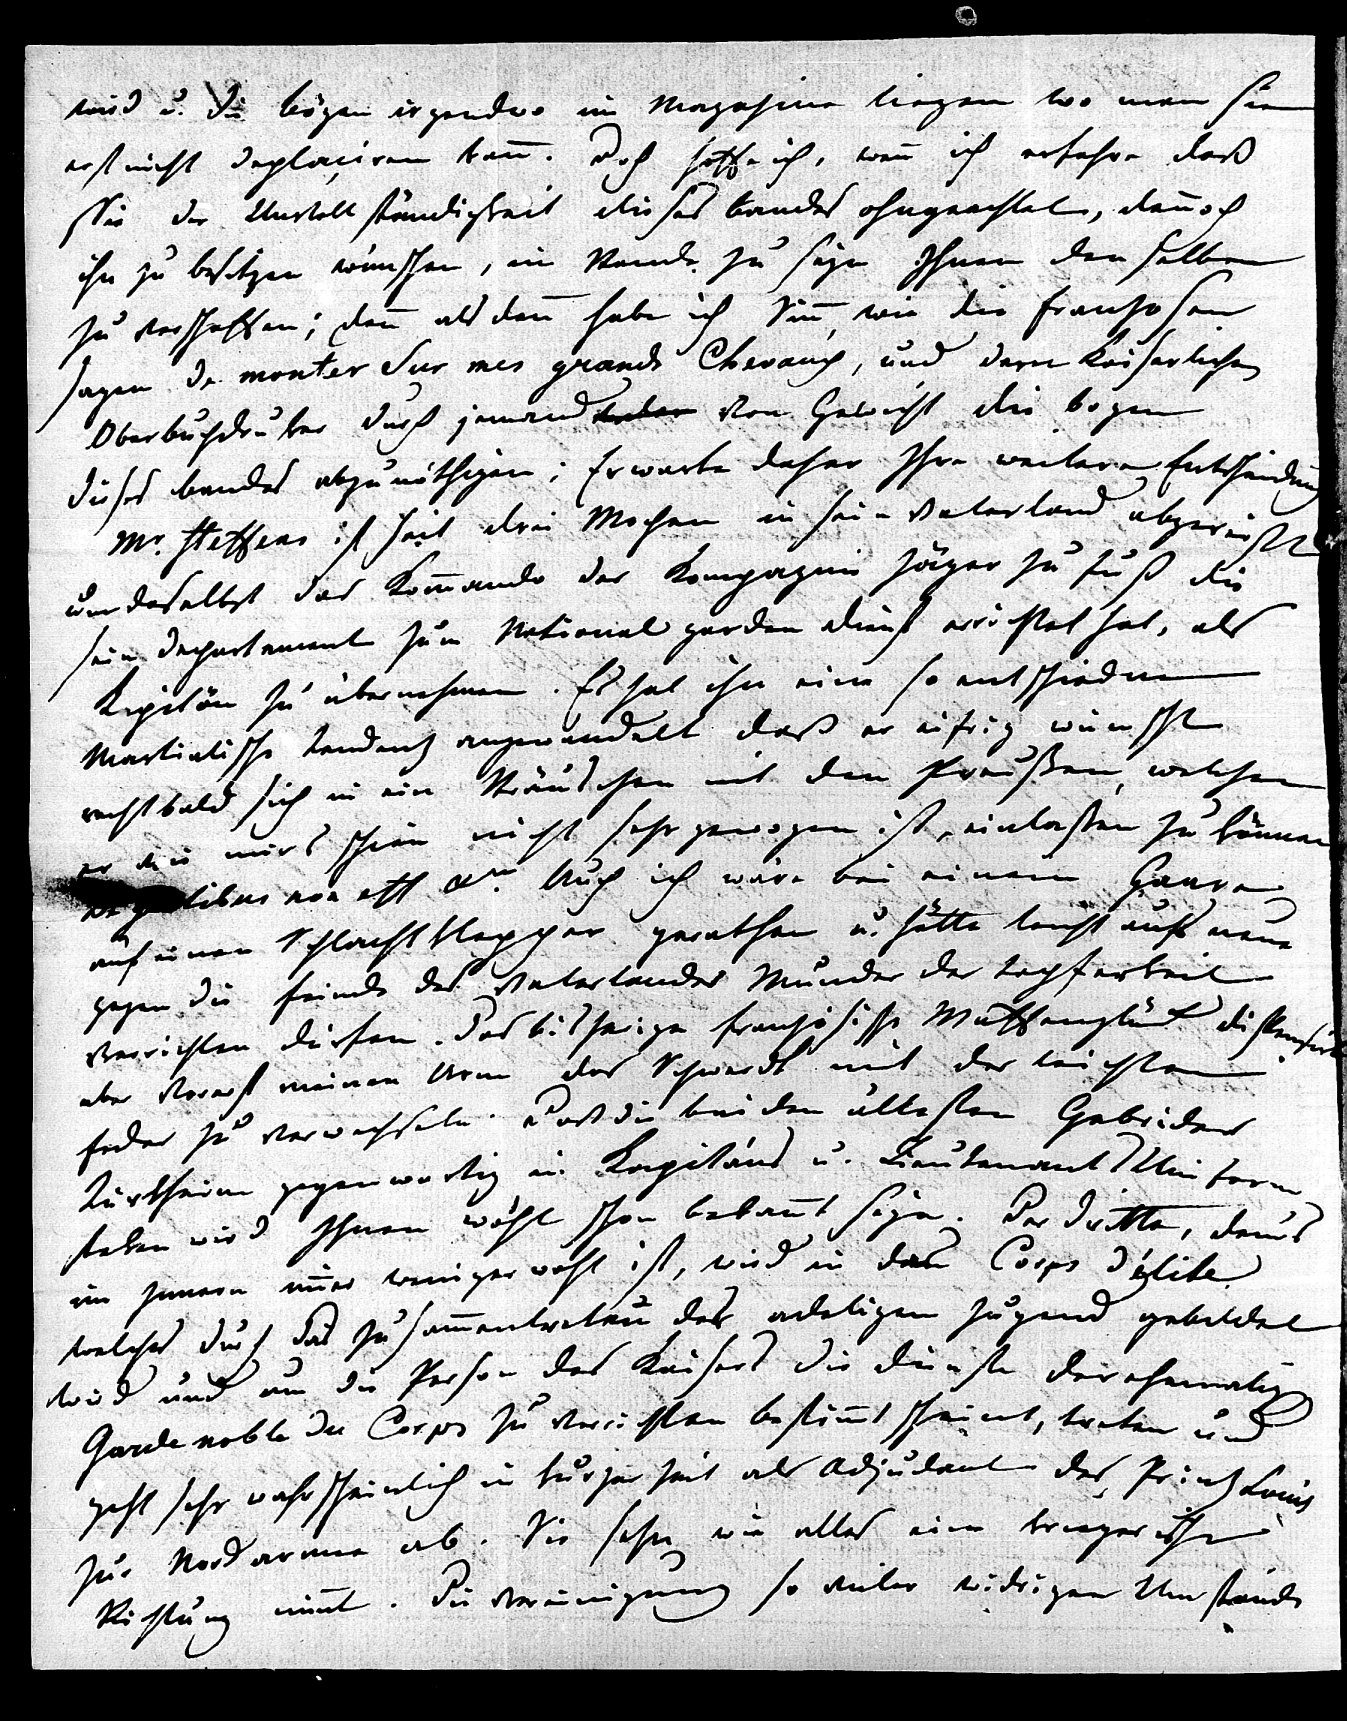 wird u. die bögen irgendwo im Magasine liegen wo man sie
erst nicht deplaçiren kann. Doch hoffe ich, wenn ich erfahre daß
Sie der Unvollständigkeit dieses bandes ohngeachtet, dennoch
ihn zu besitzen wünschen, im Stande zu seyn Ihnen denselben
zu verschaffen; denn alsdenn habe ich Sinn, wie die Franzosen
sagen de monter sur mes grands Chevaux, und dem Kaiserlichen
Oberbuchdruker durch jemand von Gewicht die bogen
dieses bandes abzunöthigen; Erwarte daher Ihre weitere Entscheidung
Mr. Steffens ist seit drei Wochen in sein Vaterland abgereißt
um daselbst das Kommando der Kompagnie Jäger zu fuß die
sein Departement zum National garden dienst errichtet hat, als
Kapitän zu übernehmen. Es hat ihn eine so entschiedene
Martialische tendenz angewandelt daß er eifrig wünscht
recht bald sich in ein Sträuschen mit den Preußen, welchen
er wie mirs schien nicht sehr gewogen ist, einlaßen zu können
Auch ich wäre bei einem Haare
auf einen Schlachtklepper gerathen u. hätte leicht aufs neue
gegen die feinde des Vaterlandes Wunder der tapferkeit
verrichten dürfen. Das bisherige französische Waffenglück dispensirt
aber vorerst meinen Arm das Schwerdt mit der leichten
feder zu verwechseln. Daß die beiden ältesten Gebrüder
Türkheim gegenwärtig in Kapitäns u. Lieutenants Uniform
steken wird Ihnen wohl schon bekannt seyn. Der dritte, dems
im Innern immer weniger wohl ist, wird in das Corps d'élite
welches durch das zusammentreten der adeligen Jugend gebildet
wird und um die Person des Kaisers die dienste der ehemaligen
Garde noble du Corps zu verrichten bestimmt scheint, treten und
geht sehr wahrscheinlich in kurzer Zeit als Adjudant des Prinz Louis
zur Nordarmee ab. Sie sehn wie alles eine kriegerische
Richtung nimmt. Die Vereinigung so vieler widrigen Umstände